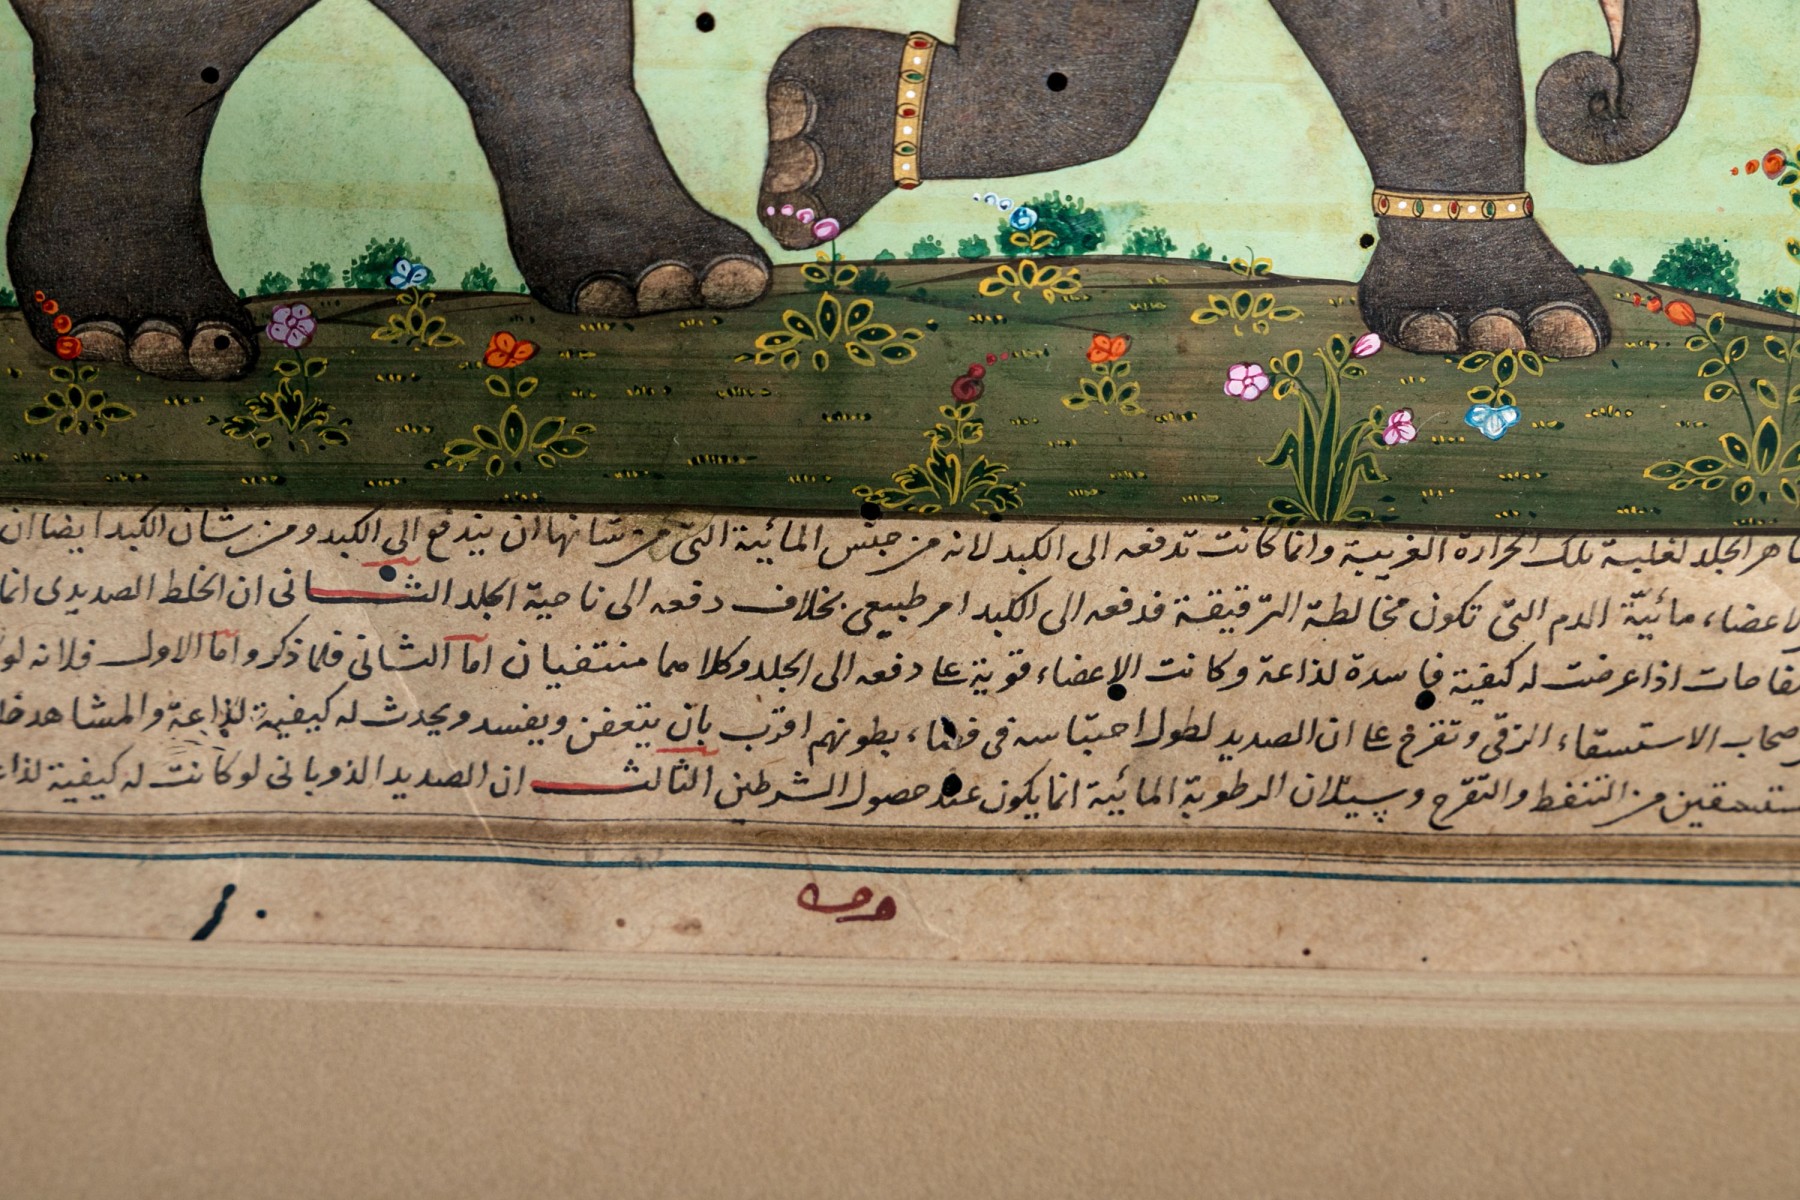 ظاهر الجلد لغلبة تلك الحرارة الغريبة وانما كانت تدفعه الى الكبد لانه من جنس المائية التى من شانها ان يندفع الى الكبد ومن شان الكبد ايضا ان
الاعضاء مائيّة الدم التىّ تكون مخالطة الرقيقة فدفعه الى الكبد امر طبيعى بخلاف دفعه الى ناحية الجلد الثانى ان الخلط الصديدى انما
اذا عرضت له كيفية فاسدة لذاعة وكانت الاعضاء قوية على دفعه الى الجلد وكلاهما منتفيان اما الثانى فلما ذكر واما الاول فلانه لو
اصحاب الاستسقاء الزقى وتفرغ على ان الصديد لطول احتباسه فى فضاء بطونهم اقرب بان يتعفن ويفسد ويحدث له كيفية لذاعة والمشاهد
من التنفط والتقرح وسيلان الرطوبة المائية انما يكون عند حصول الشرطين الثالث ان الصديد الذوبانى لو كانت له كيفية